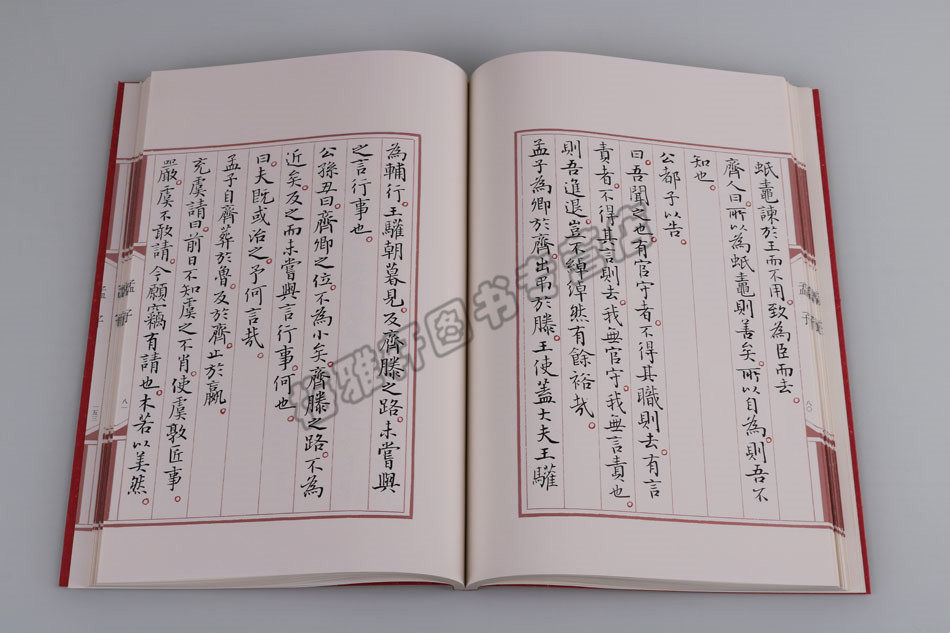 蚳鼃諫於王而不用。致為臣而去。
齊人曰。所以為蚳鼃則善矣。所以自為則吾不
知也。
公都子以告。
曰。吾聞之也。有官守者。不得其職則去。有言
責者。不得其言則去。我無官守。我無言責也。
則吾進退豈不綽綽然有餘裕哉。
孟子為卿於齊。出吊於滕。王使蓋大夫王驩
孟子
八〇
為輔行。王驩朝暮見。反齊滕之路。未嘗與
之言行事也。
公孫丑曰。齊卿之位。不為小矣。齊滕之路。不為
近矣。反之而未嘗與言行事。何也。
曰。夫既或治之。予何言哉。
孟子自齊葬於魯。反於齊。止於嬴。
充虞請曰。前日不知虞之不肖。使虞敦匠事。
嚴。虞不敢請。今願竊有請也。木若以美然。
孟子
八一